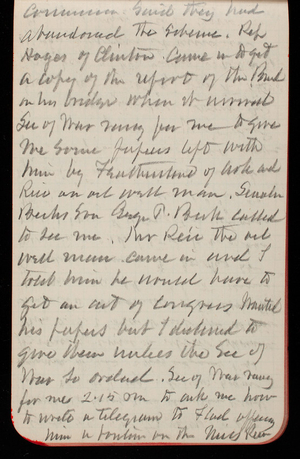 Commission said they had
abandoned the scheme. Rep
Hayes of Clinton came in to get
a copy of the report of the Board
on his bridge when it arrived
Sec of War rang for me to give
me some papers left with
him by Featherstone of Ark and
Rice an oil well man. Senator
Becks Son George T. Beck called
to see me. Mr Rice the oil
well man came in and I
told him he would have to
get an act of Congress Wanted
his papers but I declined to
give them unless the Sec of
War so ordered. Sec of War rang
for me 2.15 pm to ask me how
to write a telegram to Flad offering
him a position on the Miss River